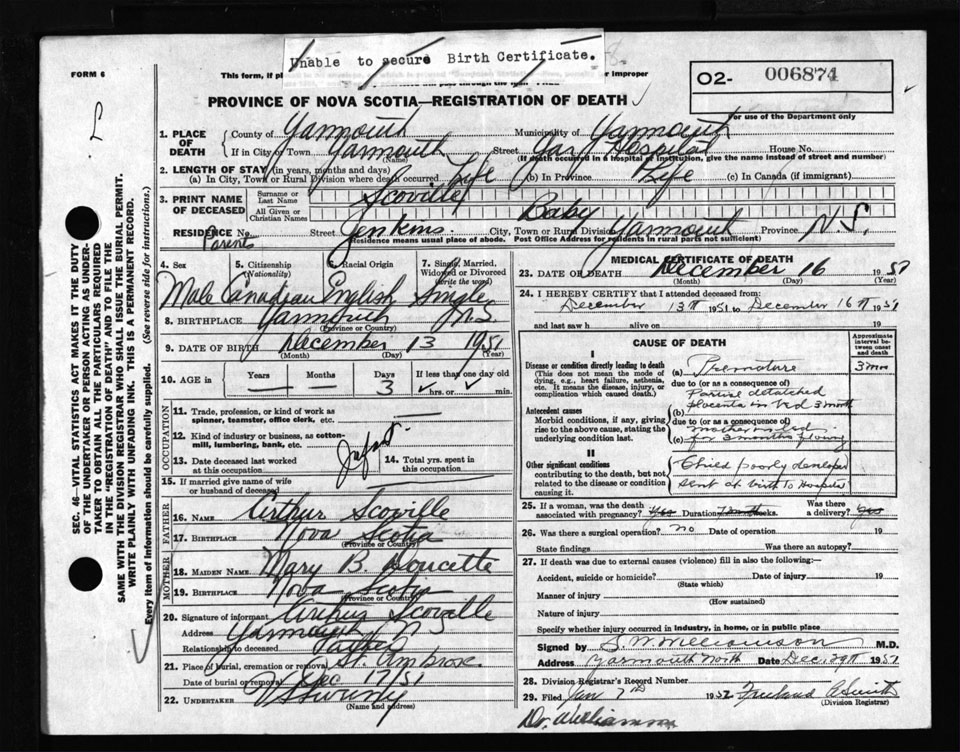 Unable to secure Birth Certificate.
FORM 6
This form, if improper
O2- 006874
PROVINCE OF NOVA SCOTIA—REGISTRATION OF DEATH
For use of the Department only
1. PLACE OF DEATH County of Yarmouth Municipality of Yarmouth
If in City or Town Yarmouth (Name) Street Yar Hospital House No.
(If death occurred in a hospital or institution, give the name instead of street and number)
2. LENGTH OF STAY (in years, months and days)
(a) In City, Town or Rural Division where death occurred Life (b) In Province Life (c) In Canada (if immigrant)
3. PRINT NAME OF DECEASED Surname or Last Name Scoville
All Given or Christian Names Baby
RESIDENCE No. Street Jenkins City, Town or Rural Division Yarmouth Province N.S.
Parents Residence means usual place of abode. Post Office Address for residents in rural parts not sufficient)
4. Sex 5. Citizenship (Nationality) 6. Racial Origin 7. Single, Married, Widowed or Divorced (write the word)
Male Canadian English Single
8. BIRTHPLACE Yarmouth N.S.
(Province or Country)
9. DATE OF BIRTH December 13 1951
(Month) (Day) (Year)
10. AGE in Years Months Days If less than one day old
— — 3 hrs. or min.
OCCUPATION
11. Trade, profession, or kind of work as spinner, teamster, office clerk, etc.
12. Kind of industry or business, as cotton-mill, lumbering, bank, etc. Infant
13. Date deceased last worked at this occupation 14. Total yrs. spent in this occupation
15. If married give name of wife or husband of deceased
FATHER
16. NAME Arthur Scoville
17. BIRTHPLACE Nova Scotia
(Province or Country)
MOTHER
18. MAIDEN NAME Mary B. Doucette
19. BIRTHPLACE Nova Scotia
(Province or Country)
20. Signature of informant Arthur Scoville
Address Yarmouth N S
Relationship to deceased Father
21. Place of burial, cremation or removal St. Ambrose
Date of burial or removal Dec 17/51
22. UNDERTAKER
(Name and address)
MEDICAL CERTIFICATE OF DEATH
23. DATE OF DEATH December 16 1951
(Month) (Day) (Year)
24. I HEREBY CERTIFY that I attended deceased from:
December 13th 1951 to December 16th 1951
and last saw h alive on 19
CAUSE OF DEATH
Approximate interval between onset and death
I
Disease or condition directly leading to death (a) Premature 3 mos
(This does not mean the mode of dying, e.g., heart failure, asthenia, etc. It means the disease, injury, or complication which caused death.)
due to (or as a consequence of)
Partial detatched
Antecedent causes (b) placenta in bed 3 month
Morbid conditions, if any, giving rise to the above cause, stating the underlying condition last.
due to (or as a consequence of)
mother in bed
(c) for 3 months
II
Other significant conditions contributing to the death, but not related to the disease or condition causing it.
Child poorly developed
sent at birth to Hospital
25. If a woman, was the death associated with pregnancy? Duration weeks. Was there a delivery?
26. Was there a surgical operation? no Date of operation 19
State findings Was there an autopsy?
27. If death was due to external causes (violence) fill in also the following:—
Accident, suicide or homicide? Date of injury 19
(State which)
Manner of injury
(How sustained)
Nature of injury
Specify whether injury occurred in industry, in home, or in public place
Signed by S. W. Williamson M.D.
Address Yarmouth North Date Dec. 29th 1951
28. Division Registrar's Record Number
29. Filed Jan 7th 1952 Freeland A Smith
(Division Registrar)
Dr. Williamson
SEC. 46—VITAL STATISTICS ACT MAKES IT THE DUTY
OF THE UNDERTAKER OR PERSON ACTING AS UNDER-
TAKER TO OBTAIN ALL THE PARTICULARS REQUIRED
IN THE "REGISTRATION OF DEATH" AND TO FILE THE
SAME WITH THE DIVISION REGISTRAR WHO SHALL ISSUE THE BURIAL PERMIT.
WRITE PLAINLY WITH UNFADING INK. THIS IS A PERMANENT RECORD.
Every item of information should be carefully supplied. (See reverse side for instructions.)